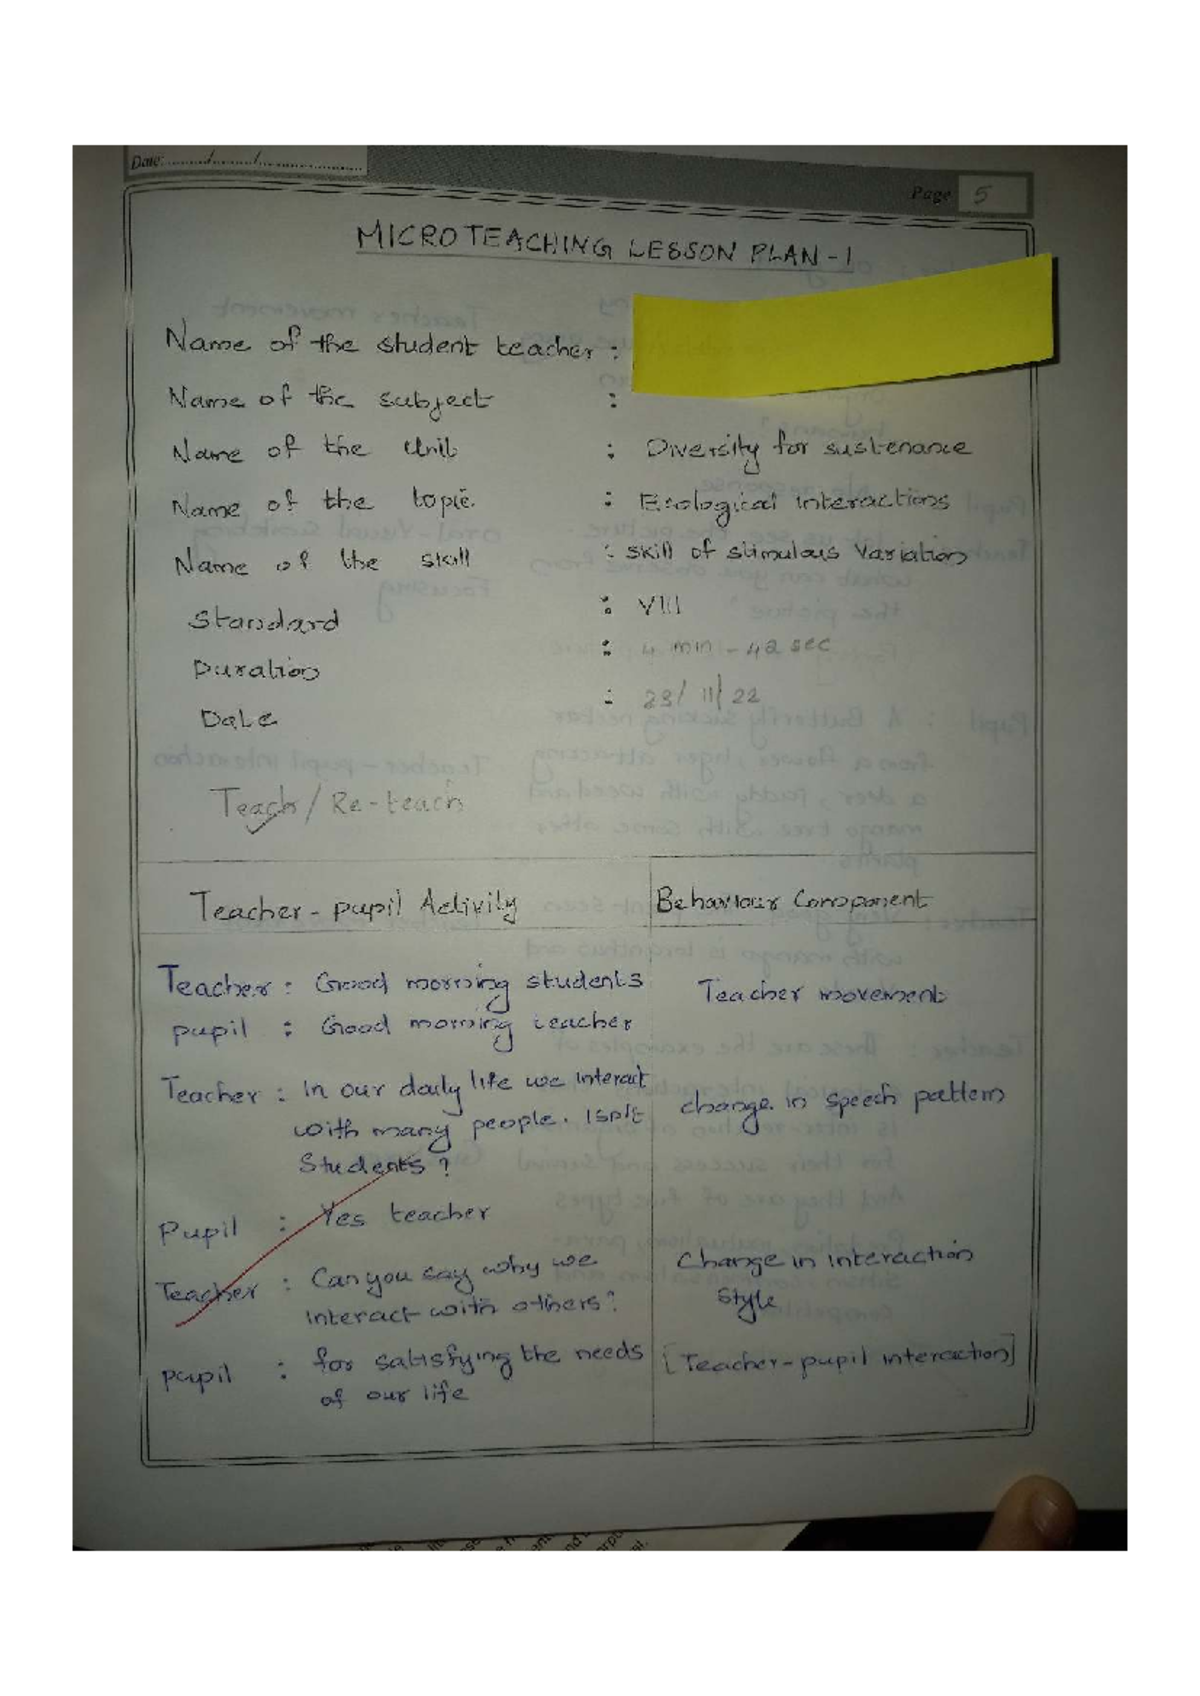 Date:......../......../....................
Page 5
MICROTEACHING LESSON PLAN - 1
Name of the student teacher :
Name of the subject :
Name of the Unit : Diversity for sustenance
Name of the topic : Ecological interactions
Name of the skill : skill of stimulous variation
Standard : VIII
Duration : 4 min - 42 sec
Date : 23/11/22
Teach / Re-teach
Teacher - pupil Activity Behaviour Component
Teacher : Good morning students Teacher movement
pupil : Good morning teacher
Teacher : In our daily life we interact change in speech pattern
with many people. Isn't
Students ?
Pupil : Yes teacher
Teacher : Can you say why we Change in interaction
interact with others? style
pupil : for satisfying the needs [Teacher-pupil interaction]
of our life